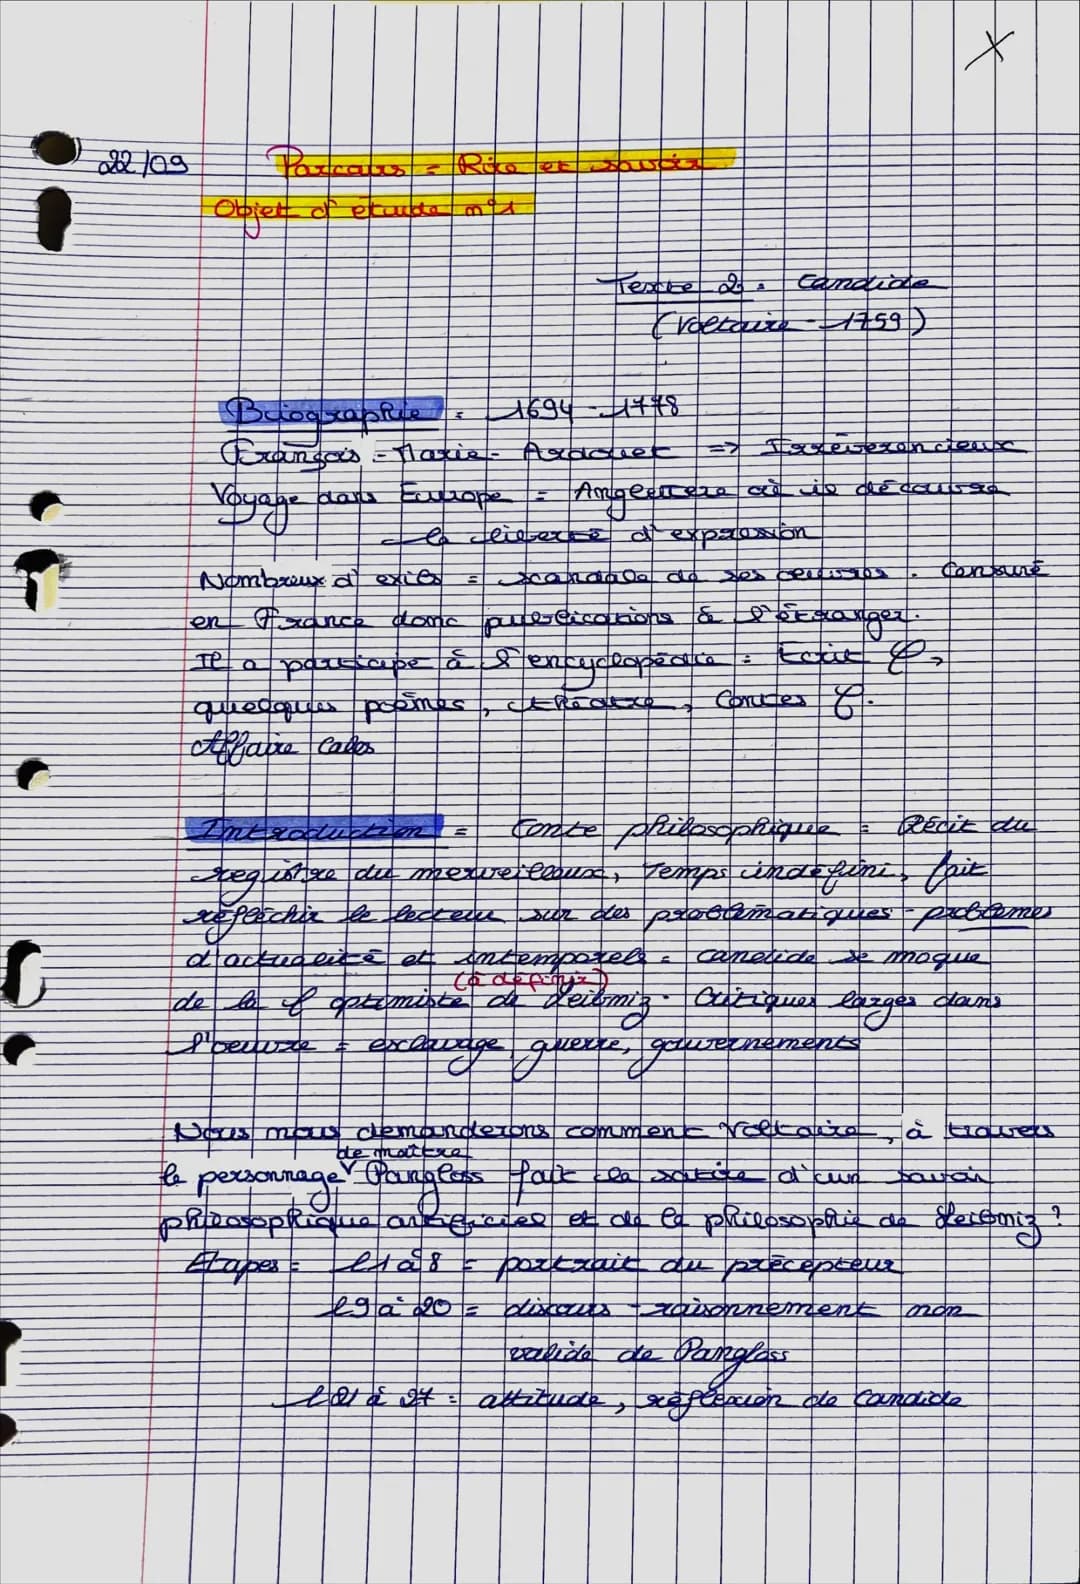 22/09 Parcours = Rire et savoir
Objet d'étude n°1
Texte 2 = Candide
(Voltaire - 1759)
Biographie = 1694 - 1778
François - Marie - Arouet => Irrévérencieux
Voyage dans Europe = Angleterre où il découvre
la liberté d'expression
Nombreux d'exils = scandale de ses oeuvres. Censuré
en France donc publications à l'étranger.
Il a participé à l'encyclopédie = Ecrit
quelques poèmes, théatre, Contes
Affaire Calas
Introduction = Conte philosophique = Récit du
registre du merveilleux, Temps indéfini, fait
réfléchir le lecteur sur des problématiques - problèmes
d'actualité et intemporels = candide se moque
(à définir)
de la optimiste de Leibniz. Critiques larges dans
l'oeuvre = esclavage, guerre, gouvernements
Nous nous demanderons comment Voltaire, à travers
de maître
le personnage Pangloss fait la satire d'un savoir
philosophique artificiel et de la philosophie de Leibniz ?
Etapes = l1 à 8 = portrait du précepteur
l9 à 20 = discours - raisonnement non
valide de Pangloss
l21 à 27 = attitude, réflexion de Candide